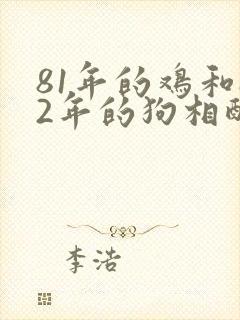 81年的鸡和
2年的狗相配
李浩